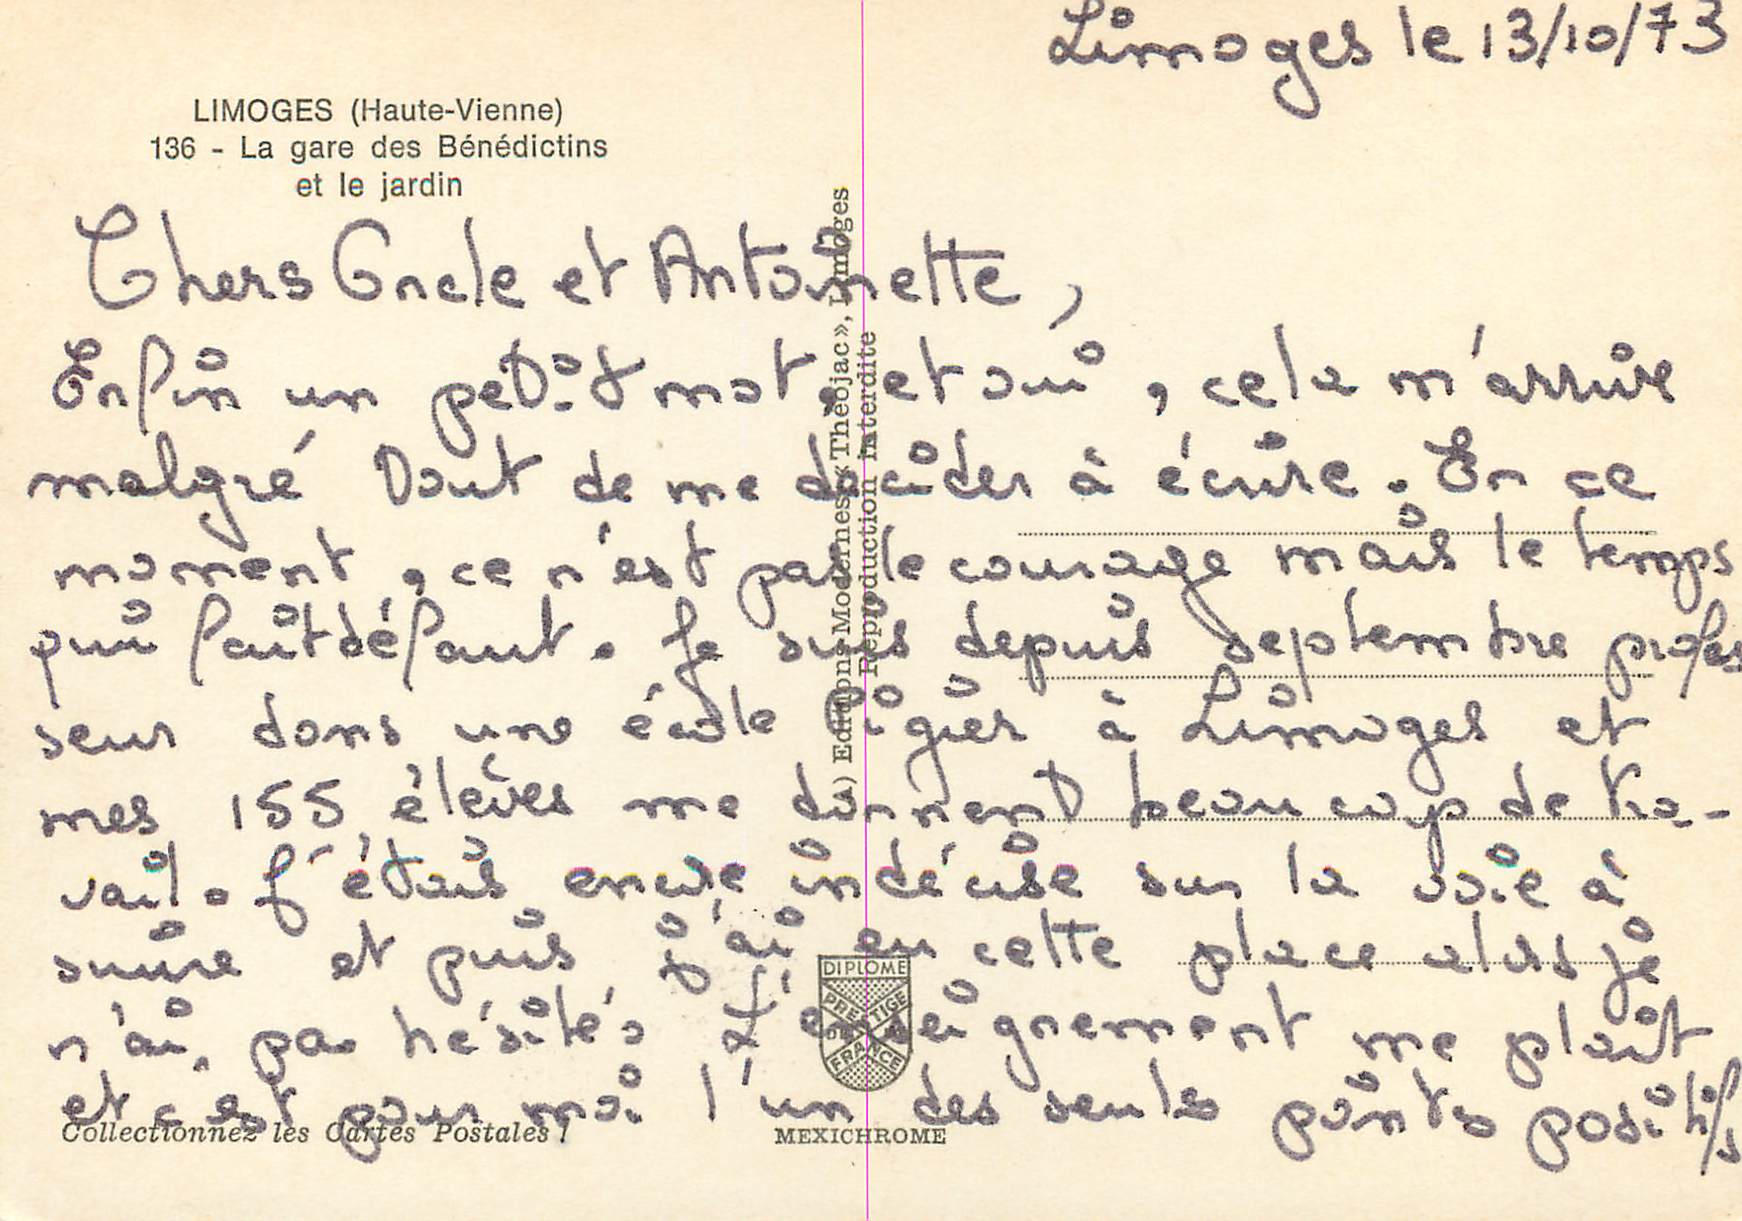 Limoges le 13/10/73
LIMOGES (Haute-Vienne)
136 - La gare des Bénédictins
et le jardin
Chers Oncle et Antoinette,
Enfin un petit mot, et oui, cela m'arrive
malgré tout de me décider à écrire. En ce
moment, ce n'est pas le courage mais le temps
qui fait défaut. Je suis depuis septembre profes
seur dans une école Pigier à Limoges et
mes 155 élèves me donnent beaucoup de tra-
vail. J'étais encore indécise sur la voie à
suivre et puis j'ai eu cette place alors je
n'ai pas hésité. L'enseignement me plaît
et c'est pour moi l'un des seuls points positifs
Collectionnez les Cartes Postales !
Editions Modernes « Théojac », Limoges
Reproduction interdite
DIPLOME
PRESTIGE
DE
FRANCE
MEXICHROME